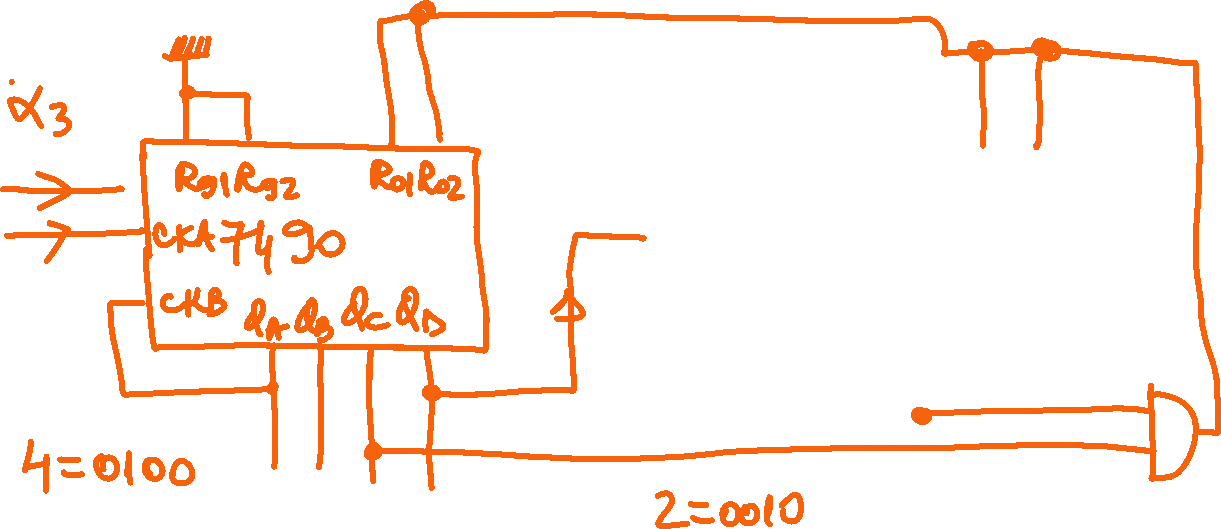 α3
Rg1 Rg2 R01 R02
CKA 7490
CKB
QA QB QC QD
4=0100
2=0010